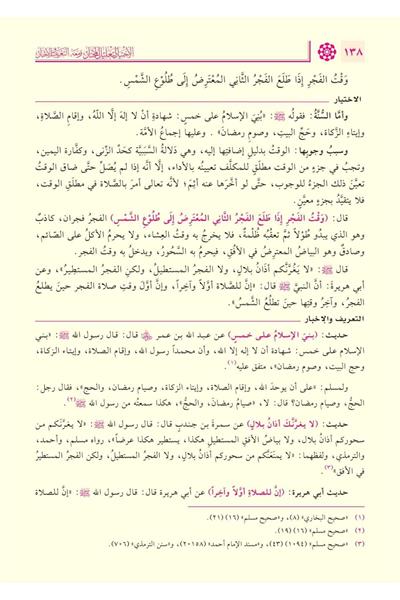 ١٣٨
الاختيار لتعليل المختار ومعه التعريف والإخبار
وَقْتُ الفَجْرِ إِذَا طَلَعَ الفَجْرُ الثَّانِي المُعْتَرِضُ إِلَى طُلُوعِ الشَّمْسِ.
الاختيار
وأمَّا السُّنَّةُ: فقولُه ﷺ: «بُنِيَ الإسلامُ على خمسٍ: شهادةِ أنْ لا إلهَ إلَّا اللهُ، وإقامِ الصَّلاةِ،
وإيتاءِ الزَّكاةِ، وحَجِّ البيتِ، وصومِ رمضانَ» . وعليها إجماعُ الأمَّة.
وسببُ وجوبِها: الوقتُ بدليلِ إضافتِها إليه، وهي دَلالةُ السَّببيَّةِ كحَدِّ الزِّنى، وكفَّارة اليمين،
وتجبُ في جزءٍ من الوقت مطلَقٍ للمكلَّف تعيينُه بالأداء، إلَّا أنَّه إذا لم يُصَلِّ حتَّى ضاق الوقتُ
تعيَّنَ ذلك الجزءُ للوجوب، حتَّى لو أخَّرها عنه أثِمَ؛ لأنَّه تعالى أمرَ بالصَّلاة في مطلَقِ الوقت،
فلا يتقيَّدُ بجزءٍ معيَّنٍ.
قال: (وَقْتُ الفَجْرِ إِذَا طَلَعَ الفَجْرُ الثَّانِي المُعْتَرِضُ إِلَى طُلُوعِ الشَّمْسِ) الفجرُ فجران، كاذبٌ
وهو الذي يبدُو طُوْلاً ثمَّ تعقُبُه ظُلْمةٌ، فلا يخرجُ به وقتُ العِشاء، ولا يحرمُ الأكلُ على الصَّائم،
وصادقٌ وهو البياضُ المعترِضُ في الأفُق، فيحرمُ به السُّحُورُ، ويدخلُ به وقتُ الفجر.
قال ﷺ: «لا يَغُرَّنَّكم أذَانُ بلالٍ، ولا الفجرُ المستطيلُ، ولكنِ الفجرُ المستطيرُ»، وعن
أبي هريرةَ: أنَّ النبيَّ ﷺ قال: «إنَّ للصَّلاة أوَّلاً وآخِراً، وإنَّ أوَّلَ وقتِ صلاة الفجرِ حينَ يطلعُ
الفجرُ، وآخِرُ وقتِها حينَ تطلُعُ الشَّمسُ».
التعريف والإخبار
حديث: (بنيَ الإسلامُ على خمسٍ) عن عبد الله بن عمر ﷺ قال: قال رسول الله ﷺ: «بني
الإسلام على خمس: شهادة أن لا إله إلا الله، وأن محمداً رسول الله، وإقام الصلاة، وإيتاء الزكاة،
وحج البيت، وصوم رمضان»، متفق عليه(١).
ولمسلم: «على أن يوحدَ الله، وإقامِ الصلاة، وإيتاء الزكاة، وصيام رمضان، والحج»، فقال رجل:
الحجُّ، وصيام رمضان؟ قال: لا، «صيامُ رمضانَ، والحجُّ»، هكذا سمعتُه من رسول الله ﷺ(٢).
حديث: (لا يغرَّنَّكَ أذانُ بلالٍ) عن سمرةَ بن جندبٍ قال: قال رسول الله ﷺ: «لا يغرنَّكم من
سحوركم أذانُ بلال، ولا بياضُ الأفق المستطيلِ هكذا، يستطير هكذا عرضاً»، رواه مسلم، وأحمد،
والترمذي، ولفظهما: «لا يمنَعَنَّكم من سحوركم أذانُ بلال، ولا الفجرُ المستطيلُ، ولكنِ الفجرُ المستطيرُ
في الأفق»(٣).
حديث أبي هريرة: (إنَّ للصلاةِ أوَّلاً وآخِراً) عن أبي هريرة قال: قال رسول الله ﷺ: «إنَّ للصلاة
(١) «صحيح البخاري» (٨)، و«صحيح مسلم» (١٦) (٢١).
(٢) «صحيح مسلم» (١٦) (١٩).
(٣) «صحيح مسلم» (١٠٩٤) (٤٣)، و«مسند الإمام أحمد» (٢٠١٥٨)، و«سنن الترمذي» (٧٠٦).